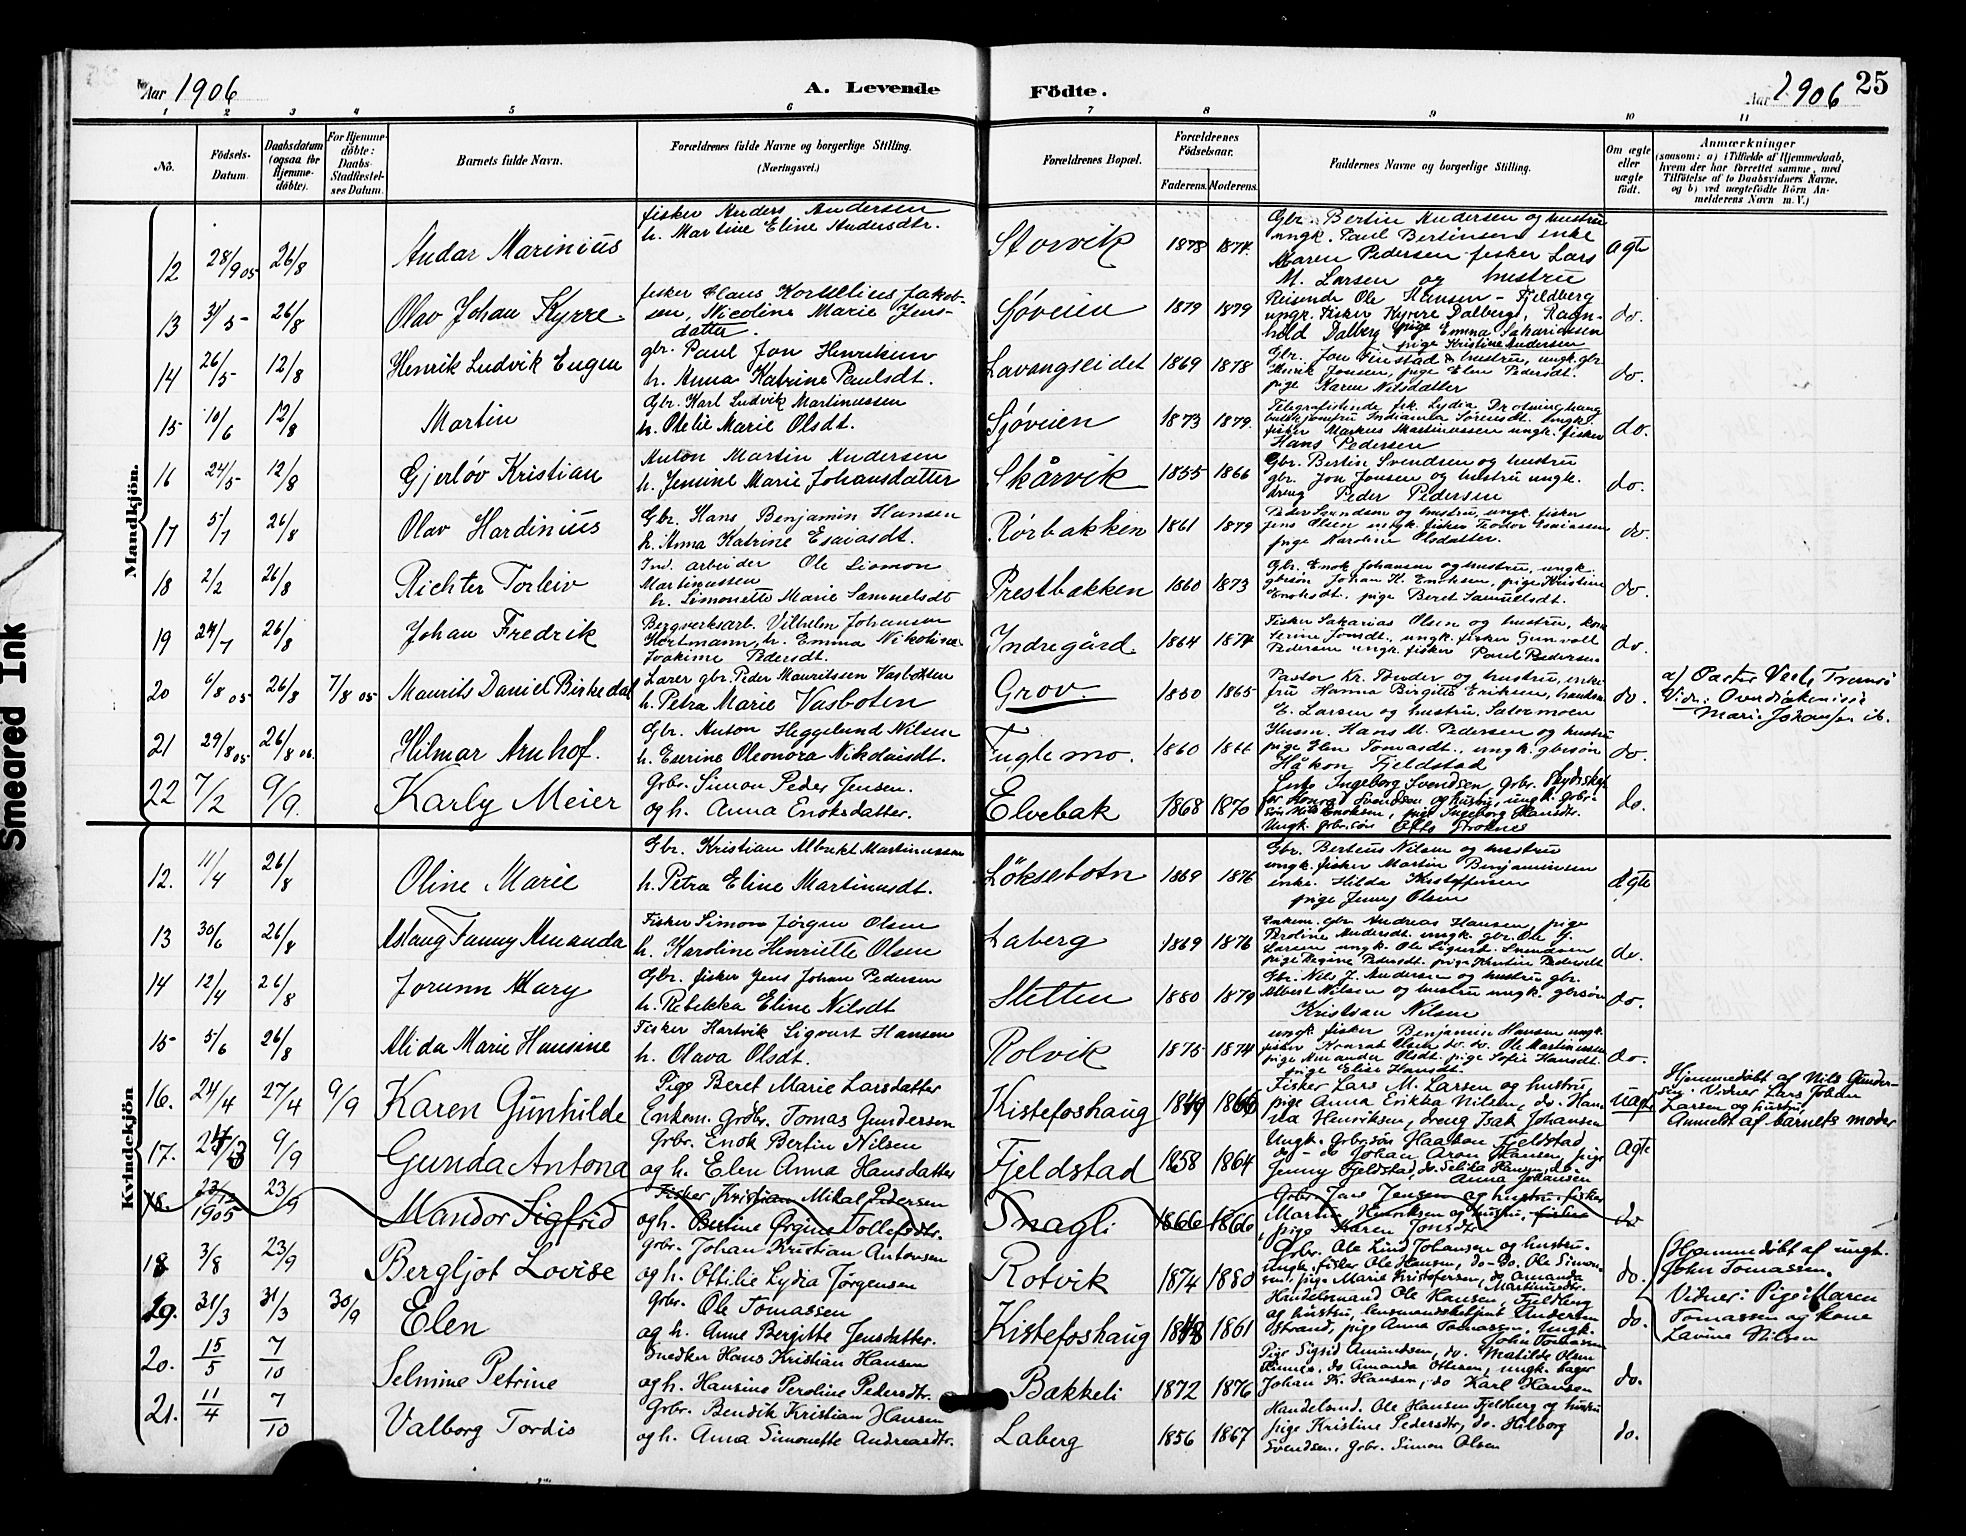 Aar 1906 A. Levende Födte. Aar 1906 25
1 2 3 4 5 6 7 8 9 10 11
No. Födsels-Datum. Daabsdatum (ogsaa for Hjemme-døbte). For Hjemme-døbte: Daabs-Stadfæstel-ses Datum. Barnets fulde Navn. Forældrenes fulde Navne og borgerlige Stilling. (Næringsvei.) Forældrenes Bopæl. Forældrenes Födselsaar. Faderens. Moderens. Faddernes Navne og borgerlige Stilling. Om ægte eller uægte födt. Anmærkninger
(saasom: a) i Tilfælde af Hjemmedaab, hvem der har forrettet samme, med Tilföielse af to Daabsvidners Navne, og b) ved uægtefödte Börn An-melderens Navn m. V.)
Mandkjön.
12 28/9 05 26/8 Andar Marinius fisker Anders Andersen
h. Martine Eline Andersdtr. Storvik 1878 1874. Gbr. Bertin Andersen og hustru
ungk. Paul Bertinsen enke
Maren Pedersen fisker Lars
M. Larsen og hustru ægte
13 31/5 26/8 Olav Johan Kyrre. fisker Claus Kornelius Jakob-
sen, Nicoline Marie Jens-
datter. Sjøveien 1879 1879 Reisende Ole Hansen - Fjeldberg
ungk. fisker Kyrre Dalberg, Ragn-
hild Dalberg pige Emma Sakariassen
pige Kristine Andersen do.
14 26/5 12/8 Henrik Ludvik Eugen gbr. Paul Jon Henriksen
h. Anna Katrine Paulsdt. Lavangseidet 1869 1878 Gbr. Jon Finstad & hustru, ungk. gbr
Henrik Jonsen, pige Elen Pedersdt.
pige Karen Nilsdatter do.
15 10/6 12/8 Martin Gbr. Karl Ludvik Martinussen
h. Otelie Marie Olsdt. Sjøveien 1873 1879. Telegrafistinde frk. Lydia Dronninghaug
fisker Markus Martinussen ungk. fisker
Hans Pedersen do.
16 24/5 12/8 Gjerløv Kristian Anton Martin Andersen
h. Jensine Marie Johansdatter Skårvik 1855 1866 Gbr. Bertin Svendsen og hustru
gbr. Jon Jonsen og hustru ungk.
dreng Peder Pedersen do.
17 5/7 26/8 Olav Hardinius Gbr. Hans Benjamin Hansen
h. Anna Katrine Esaiasdt. Rørbakken 1861 1879 Peder Svendsen og hustru, ungk. fisker
Jens Olsen ungk. fisker Teodor Esaiassen
pige Karoline Olsdatter. do.
18 2/2 26/8 Richter Torleiv Ind. arbeider Ole Siomon
Martinussen
h. Simonette Marie Samuelsdt Prestbakken 1860 1873 Gbr. Enok Johansen og hustru, ungk.
gbrsøn Johan H. Enoksen, pige Kristine
Enoksdt. pige Beret Samuelsdt. do.
19 24/7 26/8 Johan Fredrik Bergverksarb. Vilhelm Johansen
Hortmann, h. Emma Nikoline
Joakime Pedersdt. Indregård 1864 1874 Fisker Sakarias Olsen og hustru, kone
Serine Jonsdt., ungk. fisker Gunvald
Pedersen ungk. fisker Paul Pedersen do.
20 6/8 05 26/8 7/8 05 Maurits Daniel Birkedal Lærer gbr. Peder Mauritssen Vasbotten
h. Petra Marie Vasboten Grov. 1850 1865 Pastor Kr. Tønder og hustru, enke
fru Hanna Birgitte Eriksen, handsm.
E. Larsen og hustru. Salvermoen do. a) Pastor Veste Tromsø
Vidn: Overdiakonisse
Marie Johansen ib.
21 29/8 05 26/8 06. Hilmar Arnhof. Gbr. Anton Heggelund Nilsen
h. Eserine Oleonora Nikolaisdt. Fuglemo. 1860 1866 Husm. Hans M. Pedersen og hustru
pige Elen Tomasdt., ungk. gbrsøn
Håkon Fjeldstad do.
22 7/2 9/9. Karly Meier Grbr. Simon Peder Jensen.
og h. Anna Enoksdatter. Elvebak 1868 1870 Enke Ingeborg Svendsen, Grbr. Skydsskaf-
fer Konrad Svendsen og hustru, ungk. Grbr-
søn Nils Enoksen, pige Ingeborg Hansdtr.
Ungk. grbr.søn do.
Kvindekjön
12. 11/4 26/8 Oline Marie Gbr. Kristian Albrekt Martinussen
h. Petra Eline Martinusdt. Löksebotn 1869 1876 Gbr. Berteus Nilsen og hustru
ungk. fisker Martin Benjaminsen
enke. Hilda Kristoffersen
pige Jenny Olsen ægte
13 30/6 26/8 Aslaug Fanny Amanda Fisker Simon Jørgen Olsen
h. Karoline Henriette Olsen Laberg 1869 1876 Enkem. gbr. Andreas Hansen, pige
Peroline Andersdt. ungk. gbr. Ole G.
Larsen ungk. Ole Sigurt.
pige Regine Pedersdt. pige Kristine Pedersdt do.
14 12/4 26/8 Jorunn Mary Gbr. fisker Jens Johan Pedersen
h. Rebekka Eline Nilsdt Stetten 1880 1879 Gbr. Nils J. Andersen og hustru gbr.
Albert Nilsen og hustru ungk. gbrsøn
Kristian Nilsen do.
15 5/6 26/8 Alida Marie Hansine Fisker Hartvik Sigvart Hansen
h. Olava Olsdt. Rolvik 1875 1874 ungk. fisker Benjamin Hansen ungk.
fisker Konrat Olsen do. do. Ole Martinussen
pige Amanda Olsdt. pige Sofie Hansdt.
pige Elise Hansdt. do.
16. 24/4 27/4 9/9 Karen Gunhilde Pige Beret Marie Larsdatter
Enkem. Grdbr. Tomas Gundersen Kistefoshaug 1849 1866 Fisker Lars M. Larsen og hustru,
pige Anna Erikka Nilsen, do. Han-
na Henriksen, dreng Isak Johansen uægte Hjemmedöbt af Nils Gunder-
sen. Vidner Lars Johan
Larsen og hustru,
Anmeldt af barnets moder
17. 24/3 9/9 Gunda Antona Grbr. Enok Bertin Nilsen
og h. Elen Anna Hansdatter Fjeldstad 1858 1864 Ungk. Grbr.søn Haakon Fjeldstad
do - do Johan Aron Hansen, pige
Jenny Fjeldstad, do. Selika Hansen, do.
Anna Johansen Ægte
18. 23/12 1905 23/9 Mandor Sigfrid Fisker Kristian Mikal Pedersen
og h. Bertine Ørgine Tollefsdtr. Snagli 1866 1860 Grbr. Lars Jensen og hustru. fisker
Martin Henriksen og hustru,
pige Karen Jonsdtr do
18 3/8 23/9 Bergljot Lovise Grbr. Johan Kristian Antonsen
og h. Ottilie Lydia Jørgensen Rotvik 1874 1880 Grbr. Ole Lind Johansen og hustru.
ungk. fisker Ole Hansen, do - do. Ole Simon-
sen, pige Marie Kristofersen, do. Amanda
Martinusdtr. do. Hjemmedøbt af ungk.
John Tomassen.
19. 31/3 31/3 30/9 Elen Grbr. Ole Tomassen
og h. Anne Bergitte Jensdatter. Kistefoshaug 1848 1861 Handelsmand Ole Hansen, Fjeldberg
og hustru, lensmandsbetjent Andersen
Strand, pige Anna Tomassen, Ungk.
John Tomassen do. Vidner: Pige Maren
Tomassen og kone
Lavine Nilsen
20. 15/5 7/10 Selmine Petrine Snedker Hans Kristian Hansen
og h. Hansine Peroline Pedersdtr. Bakkeli 1872 1876 Pige Sigrid Amundsen, do. Matilde Olsen
do Amanda Ottesen, ungk. bager
Johan K. Hansen, do Karl Hansen do.
21. 11/4 7/10 Valborg Tordis Grbr. Bendik Kristian Hansen
og h. Anna Simonette Andreasdtr. Laberg 1856 1867 Handelsmd. Ole Hansen Fjeldberg og hustru
pige Kristine Pedersdtr, do. Hilborg
Svendsen, Grbr. Simon Olsen do.
Smeared Ink